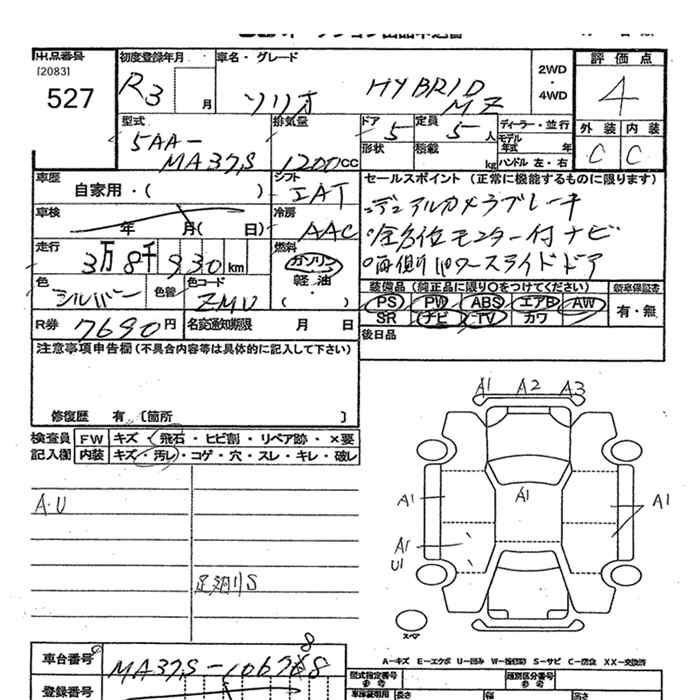 出品番号 初度登録年月 車名・グレード 評価点
[2083]
527 R3 月 ソリオ HYBRID MZ 2WD・4WD 4
型式 排気量 ドア 5 定員 5 人 ディーラー・並行 外装 内装
5AA-MA37S 1200 cc 形状 積載 kg モデル年式 年 ハンドル 左・右 C C
車歴 自家用・( ) シフト IAT セールスポイント (正常に機能するものに限ります)
車検 年 月( 日) 冷房 AAC デュアルカメラブレーキ
全方位モニター付ナビ
走行 3万8千930km 燃料 ガソリン 軽油・ 両側パワースライドドア
色 シルバー 色替 色コード ZMU 装備品 (純正品に限り○をつけてください) 新車保証書
PS PW ABS エアB AW 有・無
R券 7690円 名変通知期限 月 日 SR ナビ TV カワ
注意事項申告欄 (不具合内容等は具体的に記入して下さい) 後日品
修復歴 有 〔箇所 〕
検査員 FW キズ・飛石・ヒビ割・リペア跡・×要
記入欄 内装 キズ・汚レ・コゲ・穴・スレ・キレ・破レ
A1 A2 A3
A・U
A1 A1 A1
A1
U1
S
スペア
A-キズ E-エクボ U-凹み W-波(板) S-サビ C-腐食 XX-交換済
車台番号 MA37S-106788
登録番号 型式指定番号 類別区分番号
長さ 幅 高さ